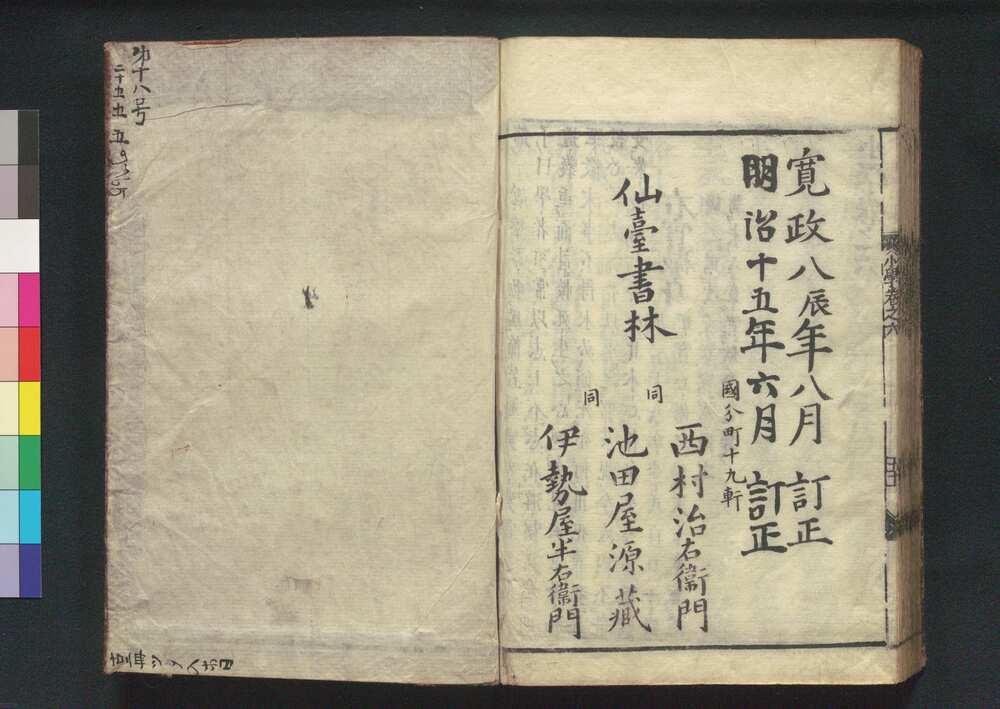 寛政八辰年八月 訂正
明治十五年六月 訂正
仙臺書林
國分町十九軒
西村治右衞門
同
池田屋源藏
同
伊勢屋半右衞門
小學卷之六
第十八号